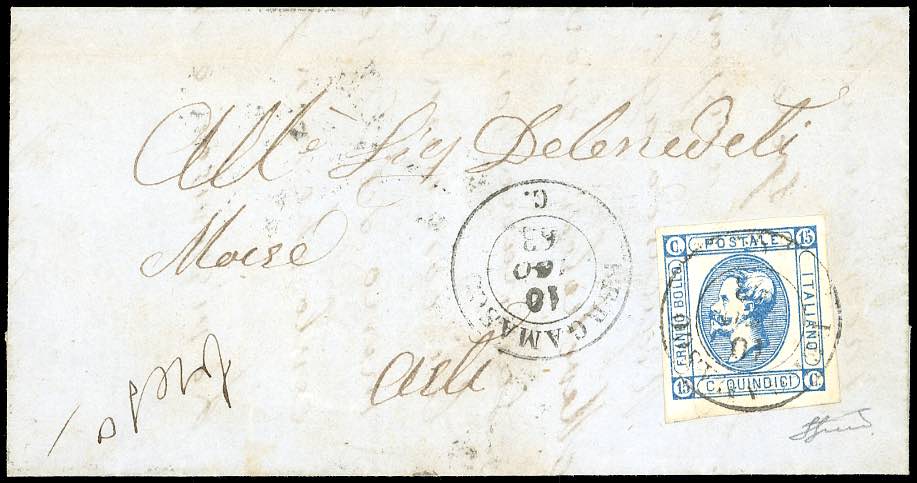 All.e Sig Debenedeti
Moise
Asti
BERGAMASCO
10
AGO
63
C.
C. POSTALE 15
FRANCO BOLLO
ITALIANO
15 C. QUINDICI C.